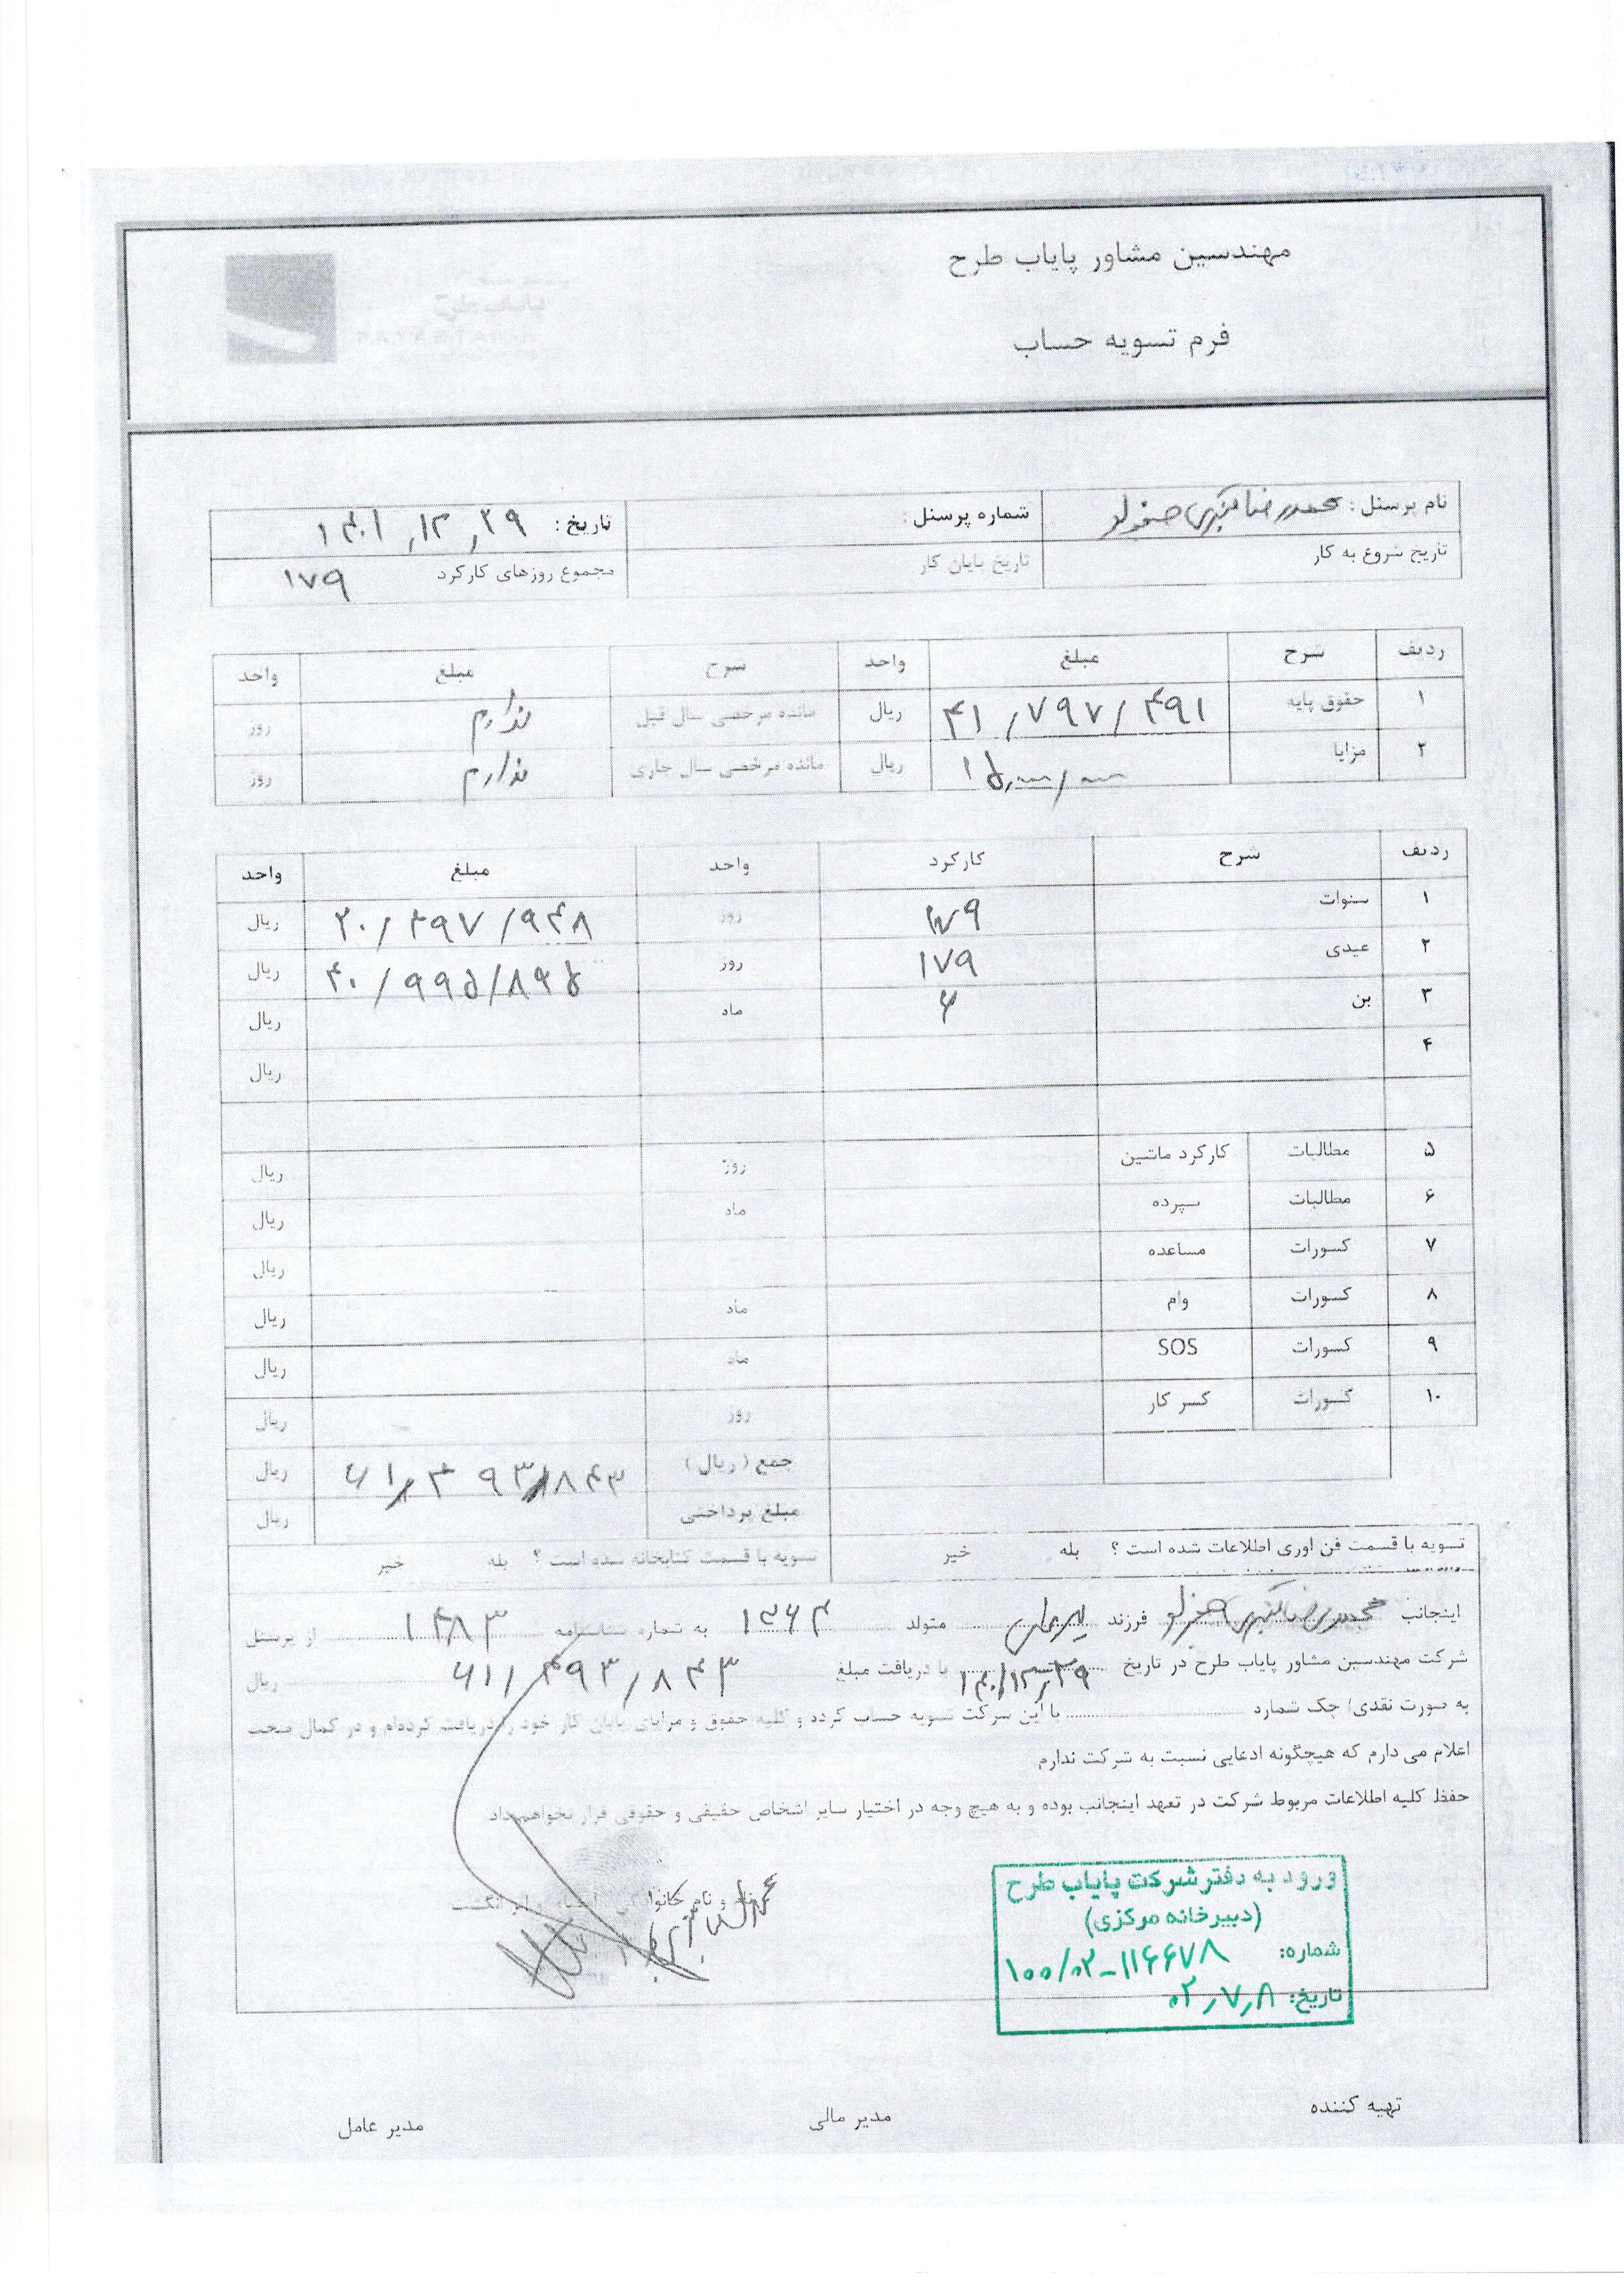 مهندسین مشاور پایاب طرح
فرم تسویه حساب
نام پرسنل : محمدرضا اکبری شماره پرسنل : تاریخ : ۱۴۰۱/۱۲/۲۹
تاریخ شروع به کار تاریخ پایان کار مجموع روزهای کارکرد ۱۷۹
ردیف شرح مبلغ واحد شرح مبلغ واحد
۱ حقوق پایه ۴۱/۷۹۷/۴۹۱ ریال مانده مرخصی سال قبل ندارم روز
۲ مزایا ریال مانده مرخصی سال جاری ندارم روز
ردیف شرح کارکرد واحد مبلغ واحد
۱ سنوات ۱۷۹ روز ۲۰/۴۹۷/۹۴۸ ریال
۲ عیدی ۱۷۹ روز ۴۰/۹۹۵/۸۹۵ ریال
۳ بن ۶ ماه ریال
۴ ریال
۵ مطالبات کارکرد ماشین روز ریال
۶ مطالبات سپرده ماه ریال
۷ کسورات مساعده ریال
۸ کسورات وام ماه ریال
۹ کسورات SOS ماه ریال
۱۰ کسورات کسر کار روز ریال
جمع (ریال) ۶۱/۴۹۳/۸۴۳ ریال
مبلغ پرداختی ریال
تسویه با قسمت فن اوری اطلاعات شده است ؟ بله خیر تسویه با قسمت کتابخانه شده است ؟ بله خیر
اینجانب محمدرضا اکبری فرزند متولد ۱۳۶۴ به شماره شناسنامه ۱۴۸۳ از پرسنل
شرکت مهندسین مشاور پایاب طرح در تاریخ ۱۴۰۱/۱۲/۲۹ با دریافت مبلغ ۶۱/۴۹۳/۸۴۳ ریال
به صورت نقدی/ چک شماره با این شرکت تسویه حساب کرده و کلیه حقوق و مزایای پایان کار خود را دریافت کرده‌ام و در کمال صحت
اعلام می دارم که هیچگونه ادعایی نسبت به شرکت ندارم
حفظ کلیه اطلاعات مربوط شرکت در تعهد اینجانب بوده و به هیچ وجه در اختیار سایر اشخاص حقیقی و حقوقی قرار نخواهم داد
نام و نام خانوادگی امضاء و اثر انگشت
ورود به دفتر شرکت پایاب طرح
(دبیرخانه مرکزی)
شماره: ۱۰۰/۰۲-۱۱۶۶۷۸
تاریخ: ۰۲/۷/۸
تهیه کننده مدیر مالی مدیر عامل